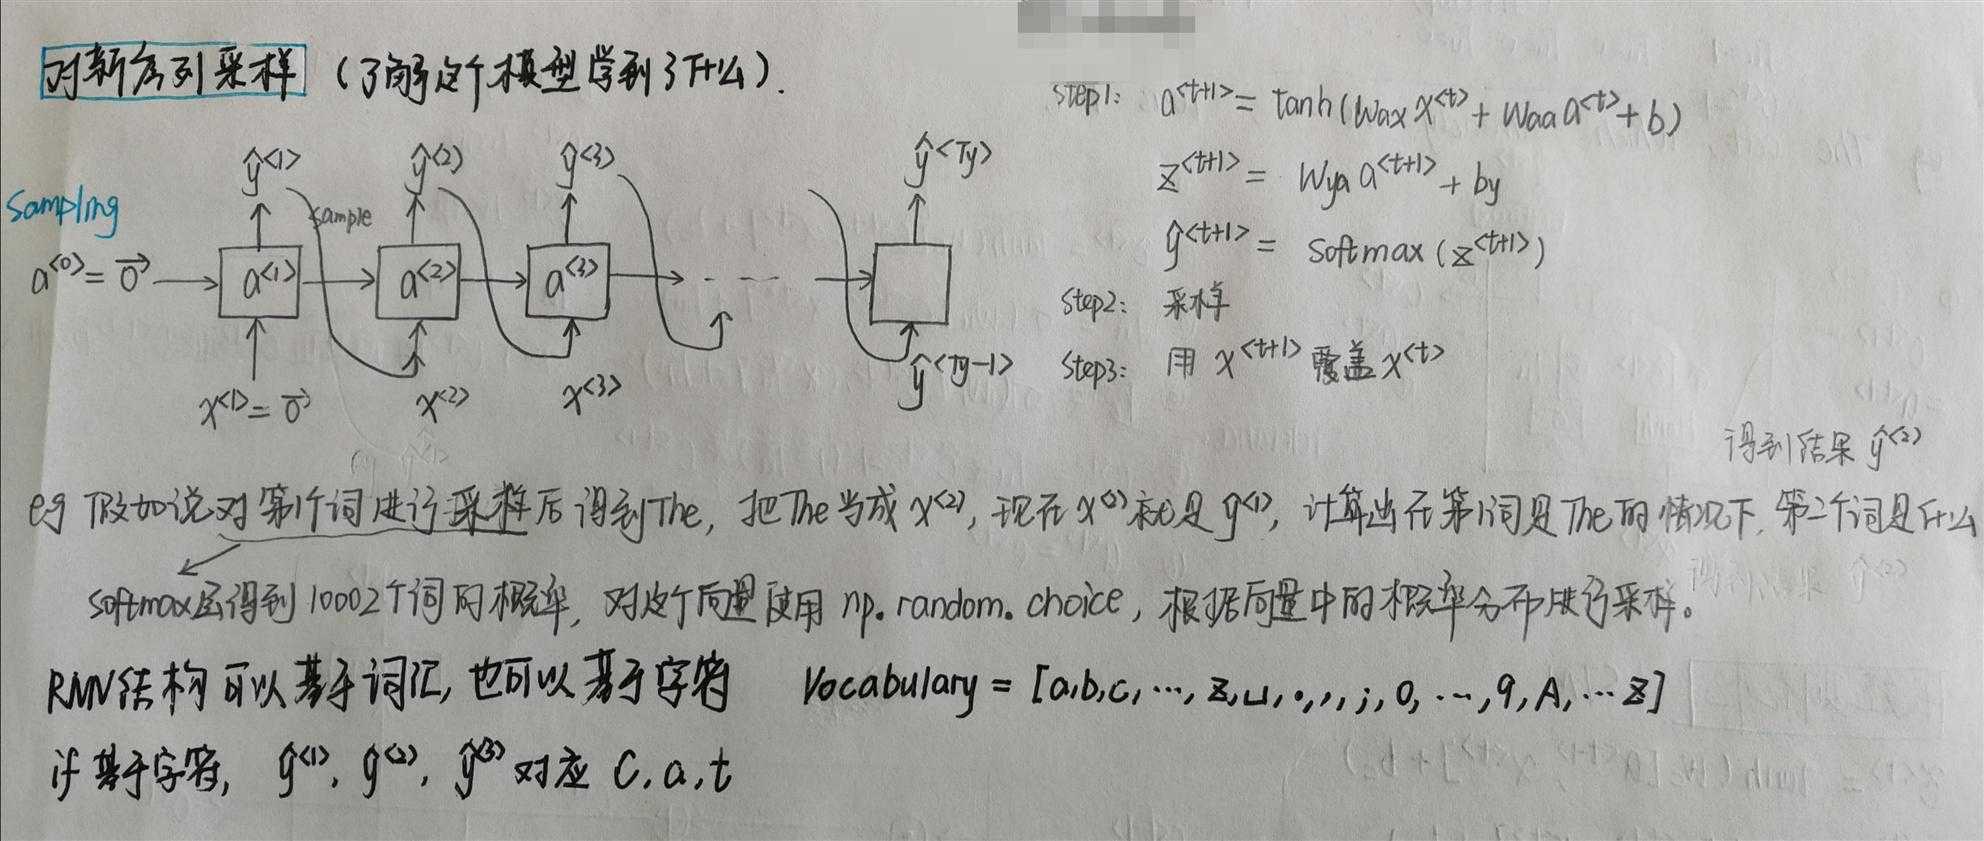 对新序列采样 (了解这个模型学到了什么).
Sampling
ŷ<1> ŷ<2> ŷ<3> ŷ<Ty>
sample
a<0> = 0⃗ a<1> a<2> a<3> - - -
x<1> = 0⃗ x<2> x<3> ŷ<Ty-1>
Step1: a<t+1> = tanh(Wax x<t> + Waa a<t> + b)
z<t+1> = Wya a<t+1> + by
ŷ<t+1> = softmax(z<t+1>)
Step2: 采样
Step3: 用 x<t+1> 覆盖 x<t>
得到结果 ŷ<2>
eg 假如说对第1个词进行采样后得到The, 把The当成 x<2>, 现在 x<2> 就是 ŷ<1>, 计算出在第1词是The的情况下, 第2个词是什么
softmax层得到10002个词的概率, 对这个向量使用 np.random.choice, 根据向量中的概率分布进行采样。
RNN结构可以基于词汇, 也可以基于字符 Vocabulary = [a,b,c,…,z,␣,.,,,;,0,…,9,A,…Z]
if 基于字符, ŷ<1>, ŷ<2>, ŷ<3> 对应 C, a, t